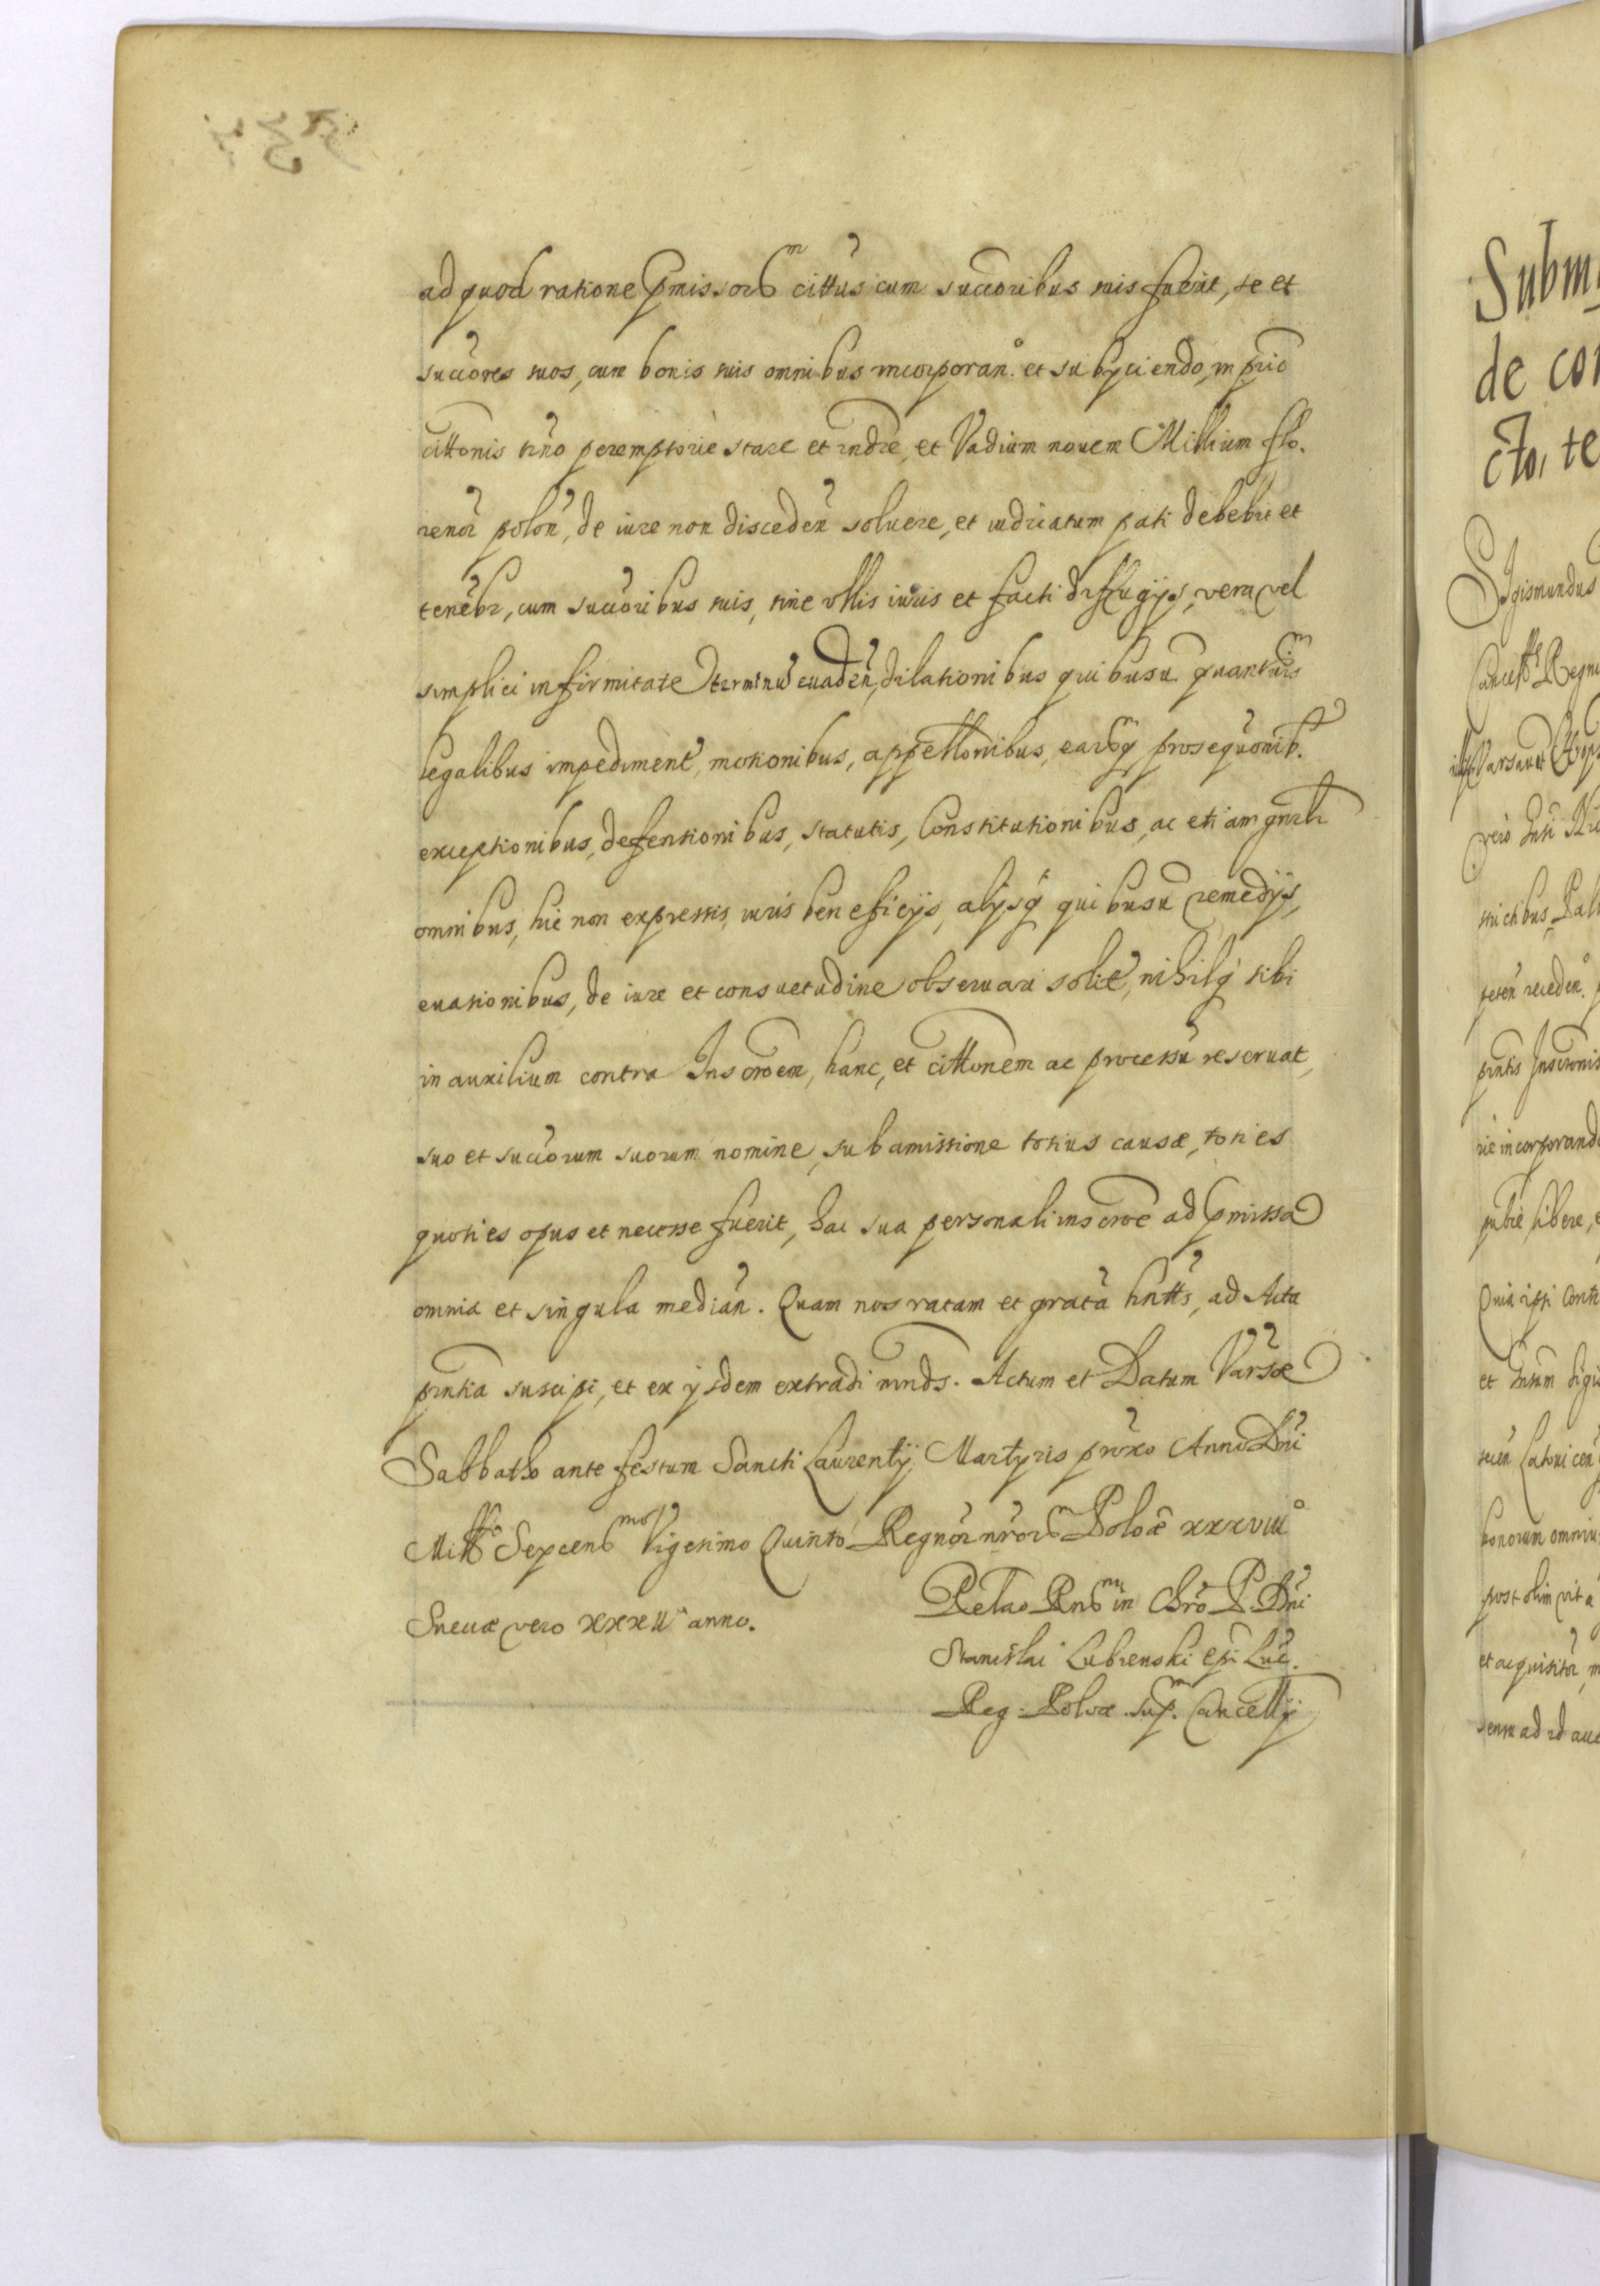 ad quod ratione pmissor͠ cittus cum succoribus suis fuerit, se et
succores suos, cum bonis suis omnibus incorporan.° et subyciendo, in prio
cittonis trno peremptorie stare et rndre, et Vadium nouem Millium flo.
renor polon, de iure non discedeñ soluere, et iudicatum pati debebit et
tenebr, cum succoribus suis, sine vllis iuris et facti diffugijs, vera vel
simplici infirmitate terminū euadeñ, dilationibus quibusu quantuis
legalibus impediment, motionibus, appellonibus, earoq̃ prosequonib.
exceptionibus, defensionibus, statutis, Constitutionibus, ac etiam gnrlr
omnibus, hic non expressis, iuris beneficijs, alijsq̃ quibusu remedijs,
euasionibus, de iure et consuetudine obseruari solit, nihilq̃ sibi
in auxilium contra Inscroem, hanc, et cittonem ac processū reseruat,
suo et succorum suorum nomine, sub amissione totius causæ, toties
quoties opus et necesse fuerit, hac sua personali inscroe ad pmissa
omnia et singula median̄. Quam nos ratam et gratā hntts, ad Acta
pntia suscipi, et ex ijsdem extradi mnds. Actum et Datum Varsæ
Sabbatho ante festum Sancti Laurentij Martyris proxo Anno Dñi
Millo Sexcenᵐᵒ Vigesimo Quinto Regnor nror Poloæ xxxviii°
Sueuæ vero xxxii° anno.
Relao Rndᵐⁱ in Chro P. Dñi
Stanislai Lubienski Epi Luc.
Reg. Poloæ. sup. Cancellij
Subm
de con
cto, te
Sigismundus
Cancell Regni
vero
peten receden.
pntis Inscronis
rie incorporand
Quia ipsi
honorum omniu
post olim vita
et acquisitor, m